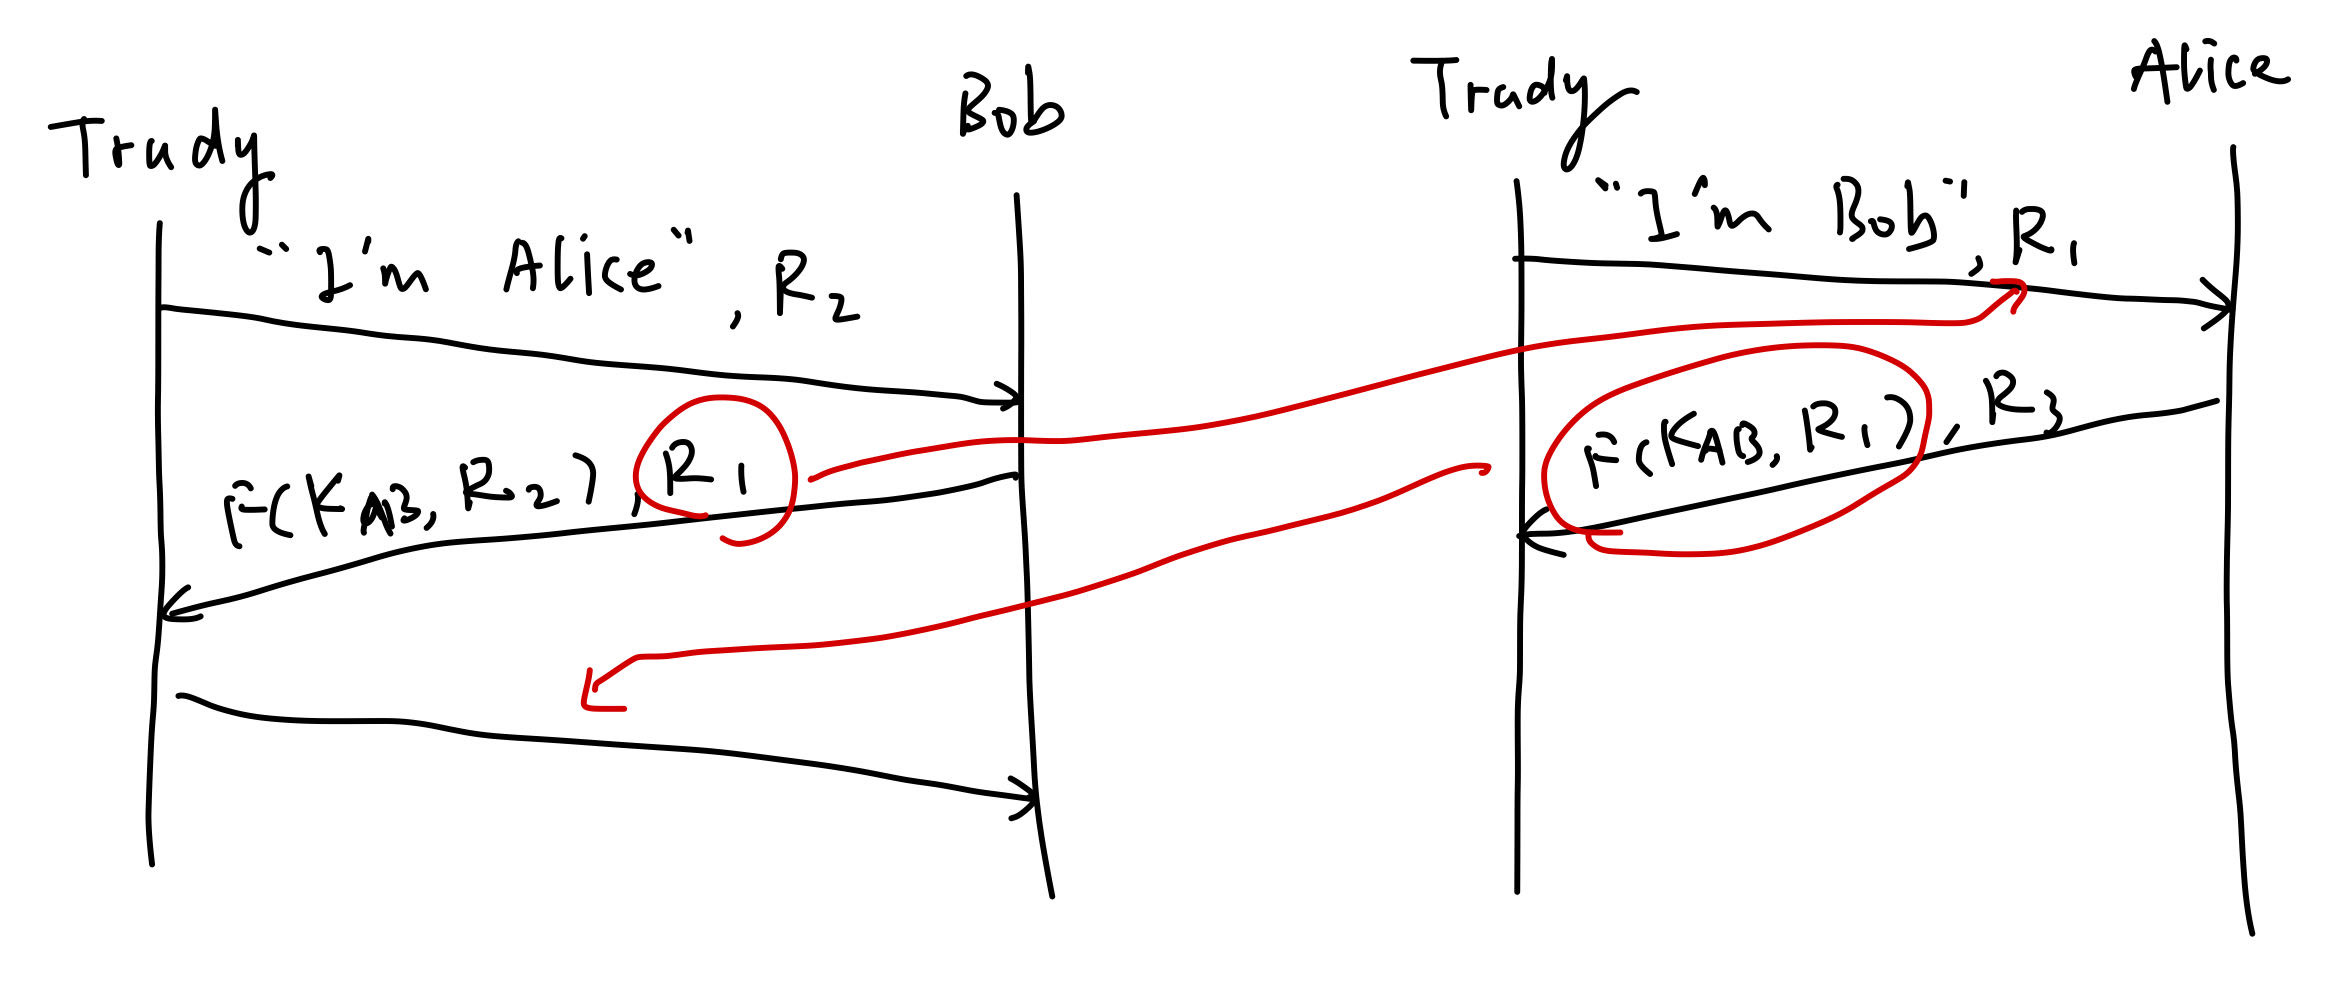 Trudy
Bob
"I'm Alice", R2
F(KAB, R2), R1
Trudy
Alice
"I'm Bob", R1
F(KAB, R1), R3